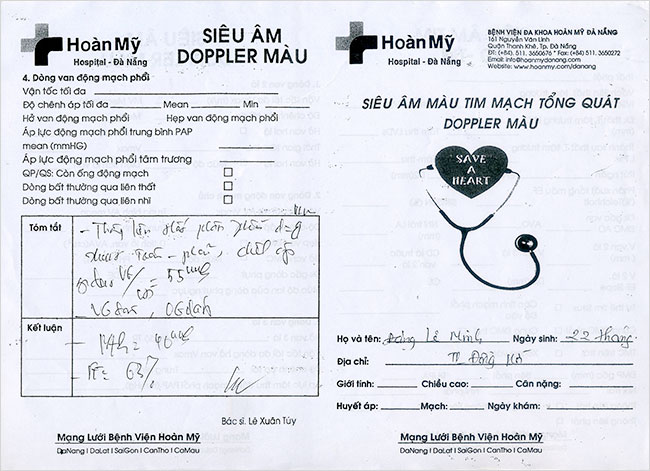 Hoàn Mỹ
Hospital - Đà Nẵng
SIÊU ÂM
DOPPLER MÀU
4. Dòng van động mạch phổi
Vận tốc tối đa
Độ chênh áp tối đa Mean Min
Hở van động mạch phổi Hẹp van động mạch phổi
Áp lực động mạch phổi trung bình PAP
mean (mmHG)
Áp lực động mạch phổi tâm trương
QP/QS: Còn ống động mạch
Dòng bất thường qua liên thất
Dòng bất thường qua liên nhĩ
Tóm tắt
- Thông liên thất phần
= 55
Kết luận
= 40
= 63%
Bác sĩ. Lê Xuân Túy
Mạng Lưới Bệnh Viện Hoàn Mỹ
DaNang I DaLat I SaiGon I CanTho I CaMau
Hoàn Mỹ
Hospital - Đà Nẵng
BỆNH VIỆN ĐA KHOA HOÀN MỸ ĐÀ NẴNG
161 Nguyễn Văn Linh
Quận Thanh Khê, Tp. Đà Nẵng
ĐT: (+84) 511. 3650676 * Fax: (+84) 511. 3650272
Email: info@hoanmydanang.com
Website: www.hoanmy.com/danang
SIÊU ÂM MÀU TIM MẠCH TỔNG QUÁT
DOPPLER MÀU
SAVE
A
HEART
Họ và tên: Đặng Lê Minh Ngày sinh: 22 tháng
Địa chỉ: TT Đông Hà
Giới tính: Chiều cao: Cân nặng:
Huyết áp: Mạch: Ngày khám:
Mạng Lưới Bệnh Viện Hoàn Mỹ
DaNang I DaLat I SaiGon I CanTho I CaMau